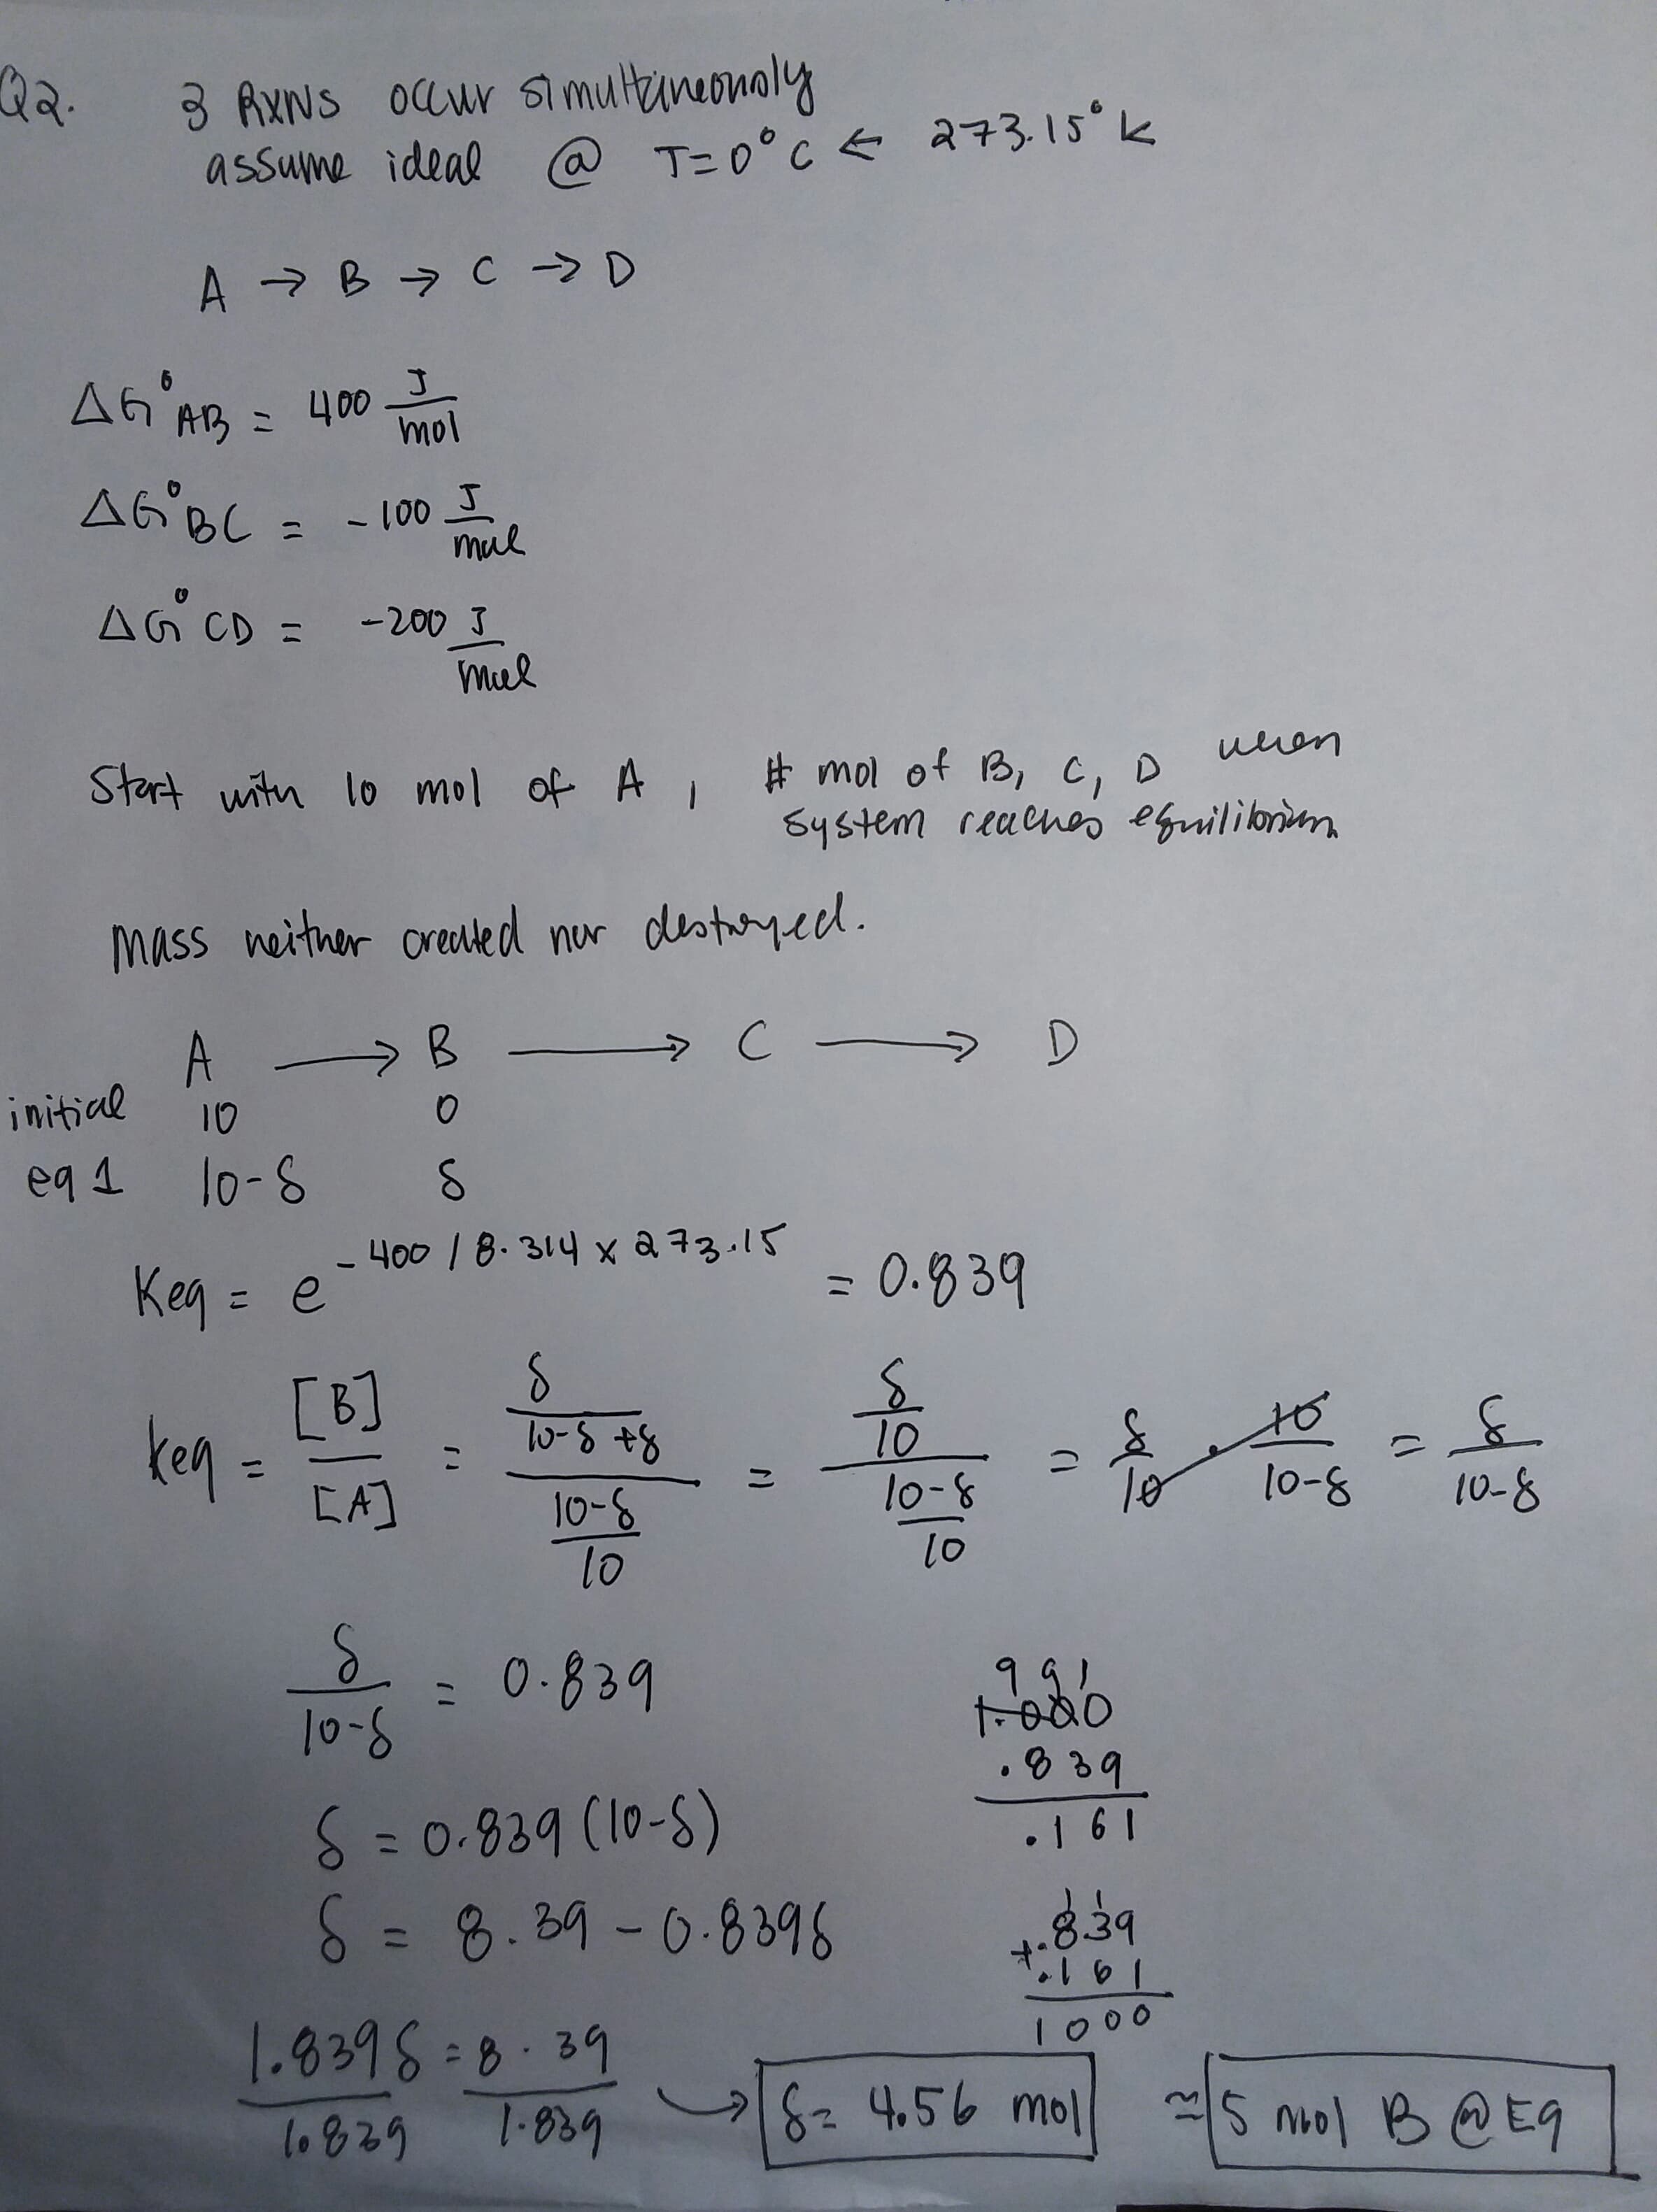 Q2. 3 RXNS occur simultaneously
assume ideal @ T=0°C ← 273.15°K
A → B → C → D
ΔG°AB = 400 J/mol
ΔG°BC = -100 J/mol
ΔG°CD = -200 J/mol
Start with 10 mol of A, # mol of B, C, D when
system reaches equilibrium
Mass neither created nor destroyed.
A → B → C → D
initial 10 0
eq 1 10-δ δ
Keq = e^-400/8.314 x 273.15 = 0.839
keq = [B]/[A] = (δ/(10-δ+δ))/((10-δ)/10) = (δ/10)/((10-δ)/10) = δ/10 · 10/(10-δ) = δ/(10-δ)
δ/(10-δ) = 0.839
δ = 0.839(10-δ)
δ = 8.39 - 0.839δ
1.839δ/1.839 = 8.39/1.839 → δ= 4.56 mol ≃ 5 mol B @ Eq
9 9 1
1.000
.839
.161
1 1
.839
+.161
1000